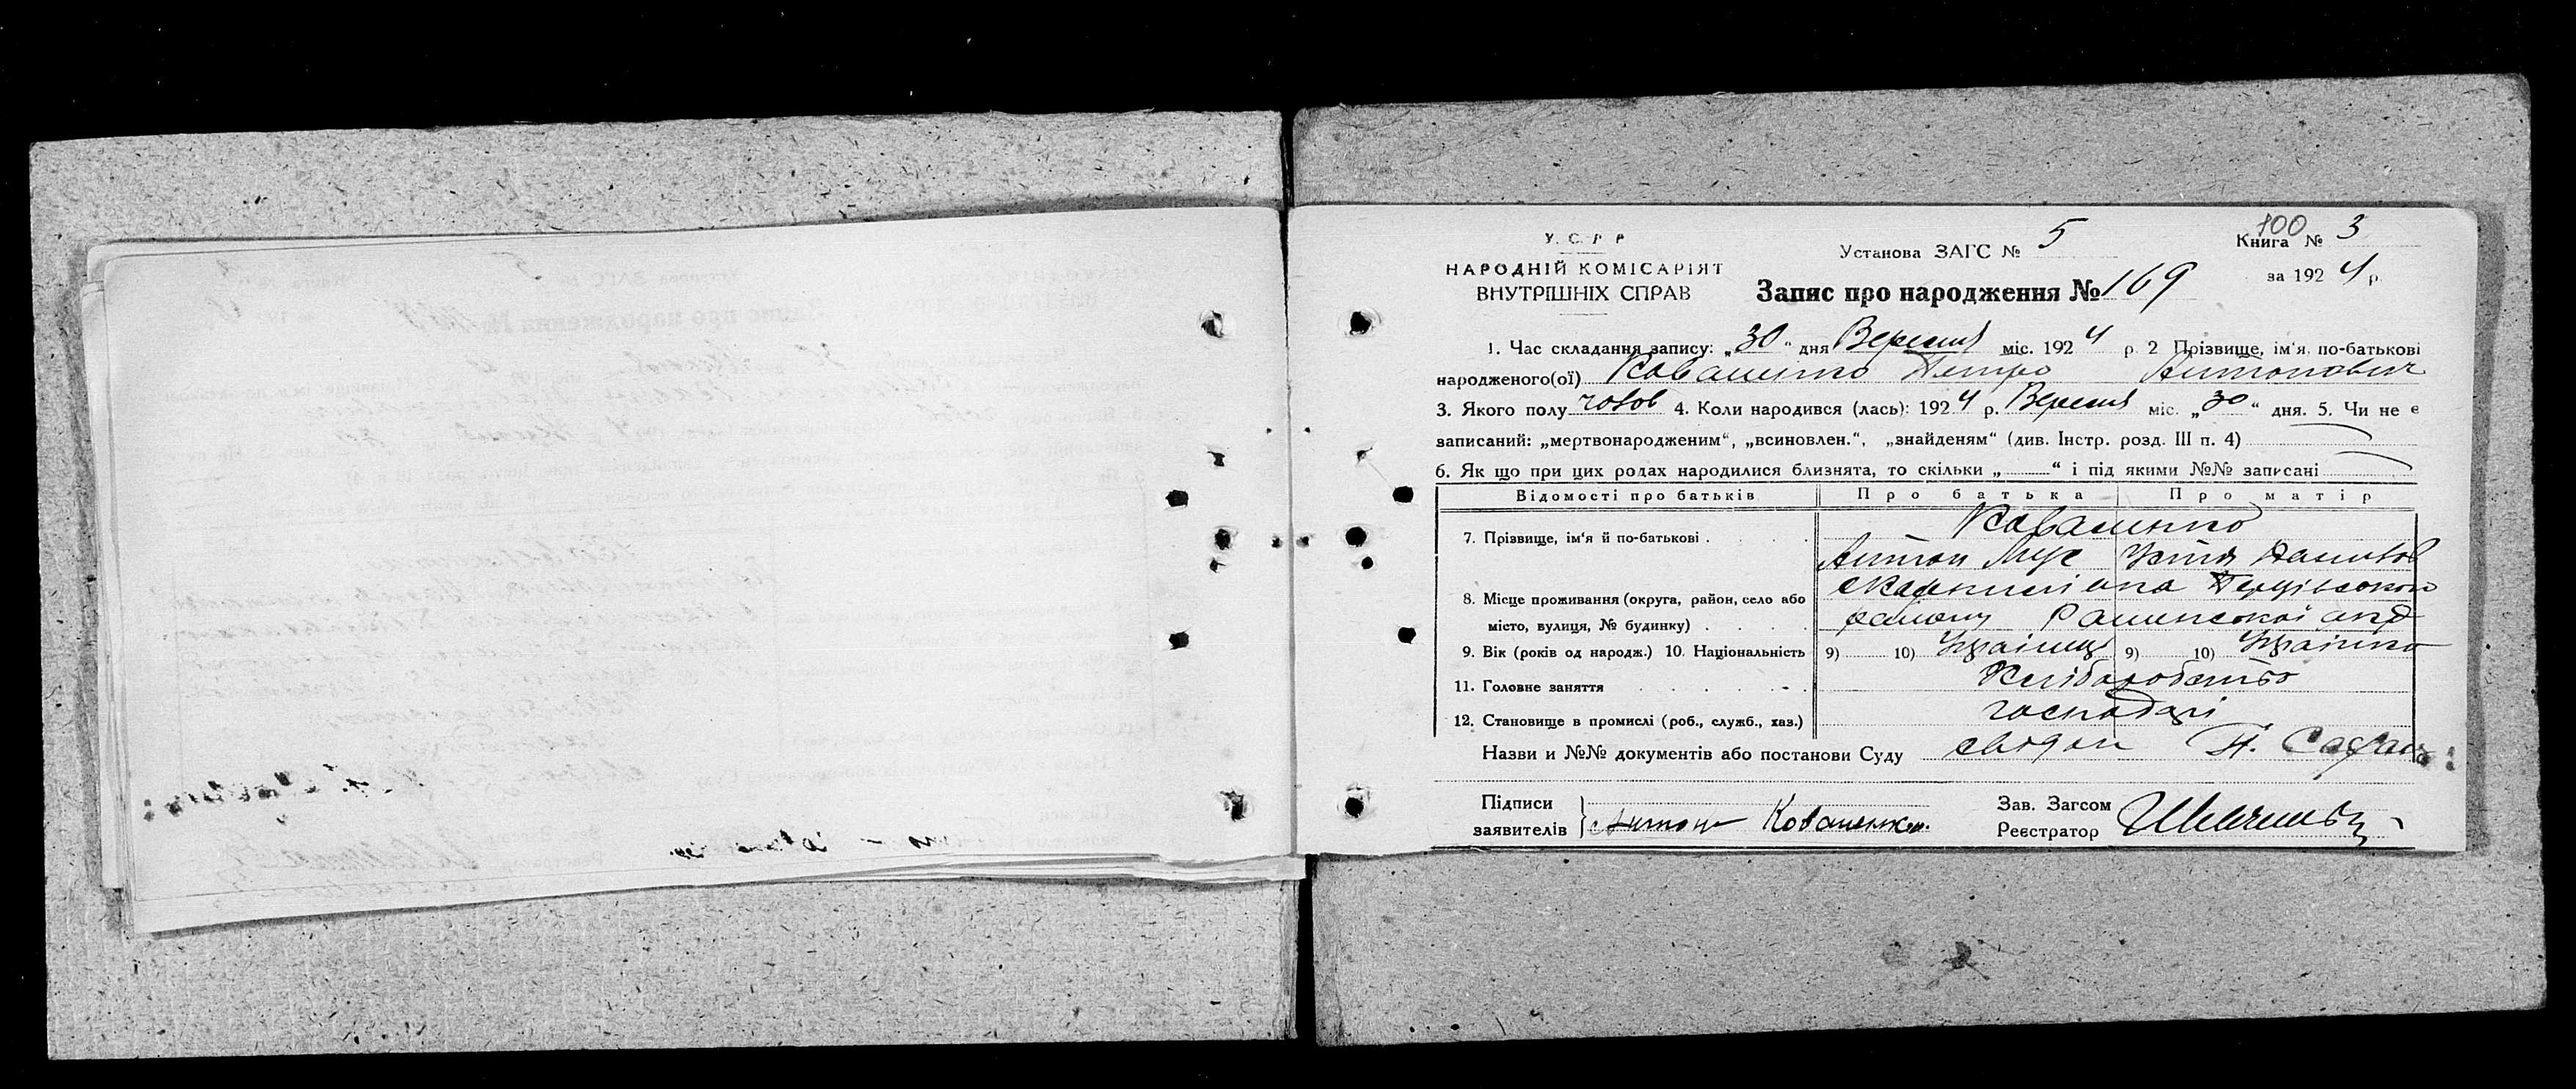 100
У. С. Р Р
НАРОДНІЙ КОМІСАРІЯТ
ВНУТРІШНІХ СПРАВ
Установа ЗАГС № 5
Книга № 3
за 1924 р.
Запис про народження № 169
1. Час складання запису: „30“ дня Вересня міс. 1924 р. 2 Прізвище, ім'я, по-батькові
народженого(ої) Коваленко Петро Антонович
3. Якого полу чолов 4. Коли народився (лась): 1924 р. Вересня міс. „30“ дня. 5. Чи не є
записаний: „мертвонародженим“, „всиновлен.“, „знайденям“ (див. Інстр. розд. III п. 4)
6. Як що при цих родах народилися близнята, то скільки „ “ і під якими №№ записані
Відомості про батьків Про батька Про матір
7. Прізвище, ім'я й по-батькові . Коваленко
Антон
8. Місце проживання (округа, район, село або
місто, вулиця, № будинку) району Роменської окр
9. Вік (років од народж.) 10. Національність 9) 10) Українець 9) 10) Українка
11. Головне заняття Хліборобство
12. Становище в промислі (роб., служб., хаз.) господарі
Назви и №№ документів або постанови Суду
Підписи
заявителів Антон Коваленко.
Зав. Загсом
Реєстратор